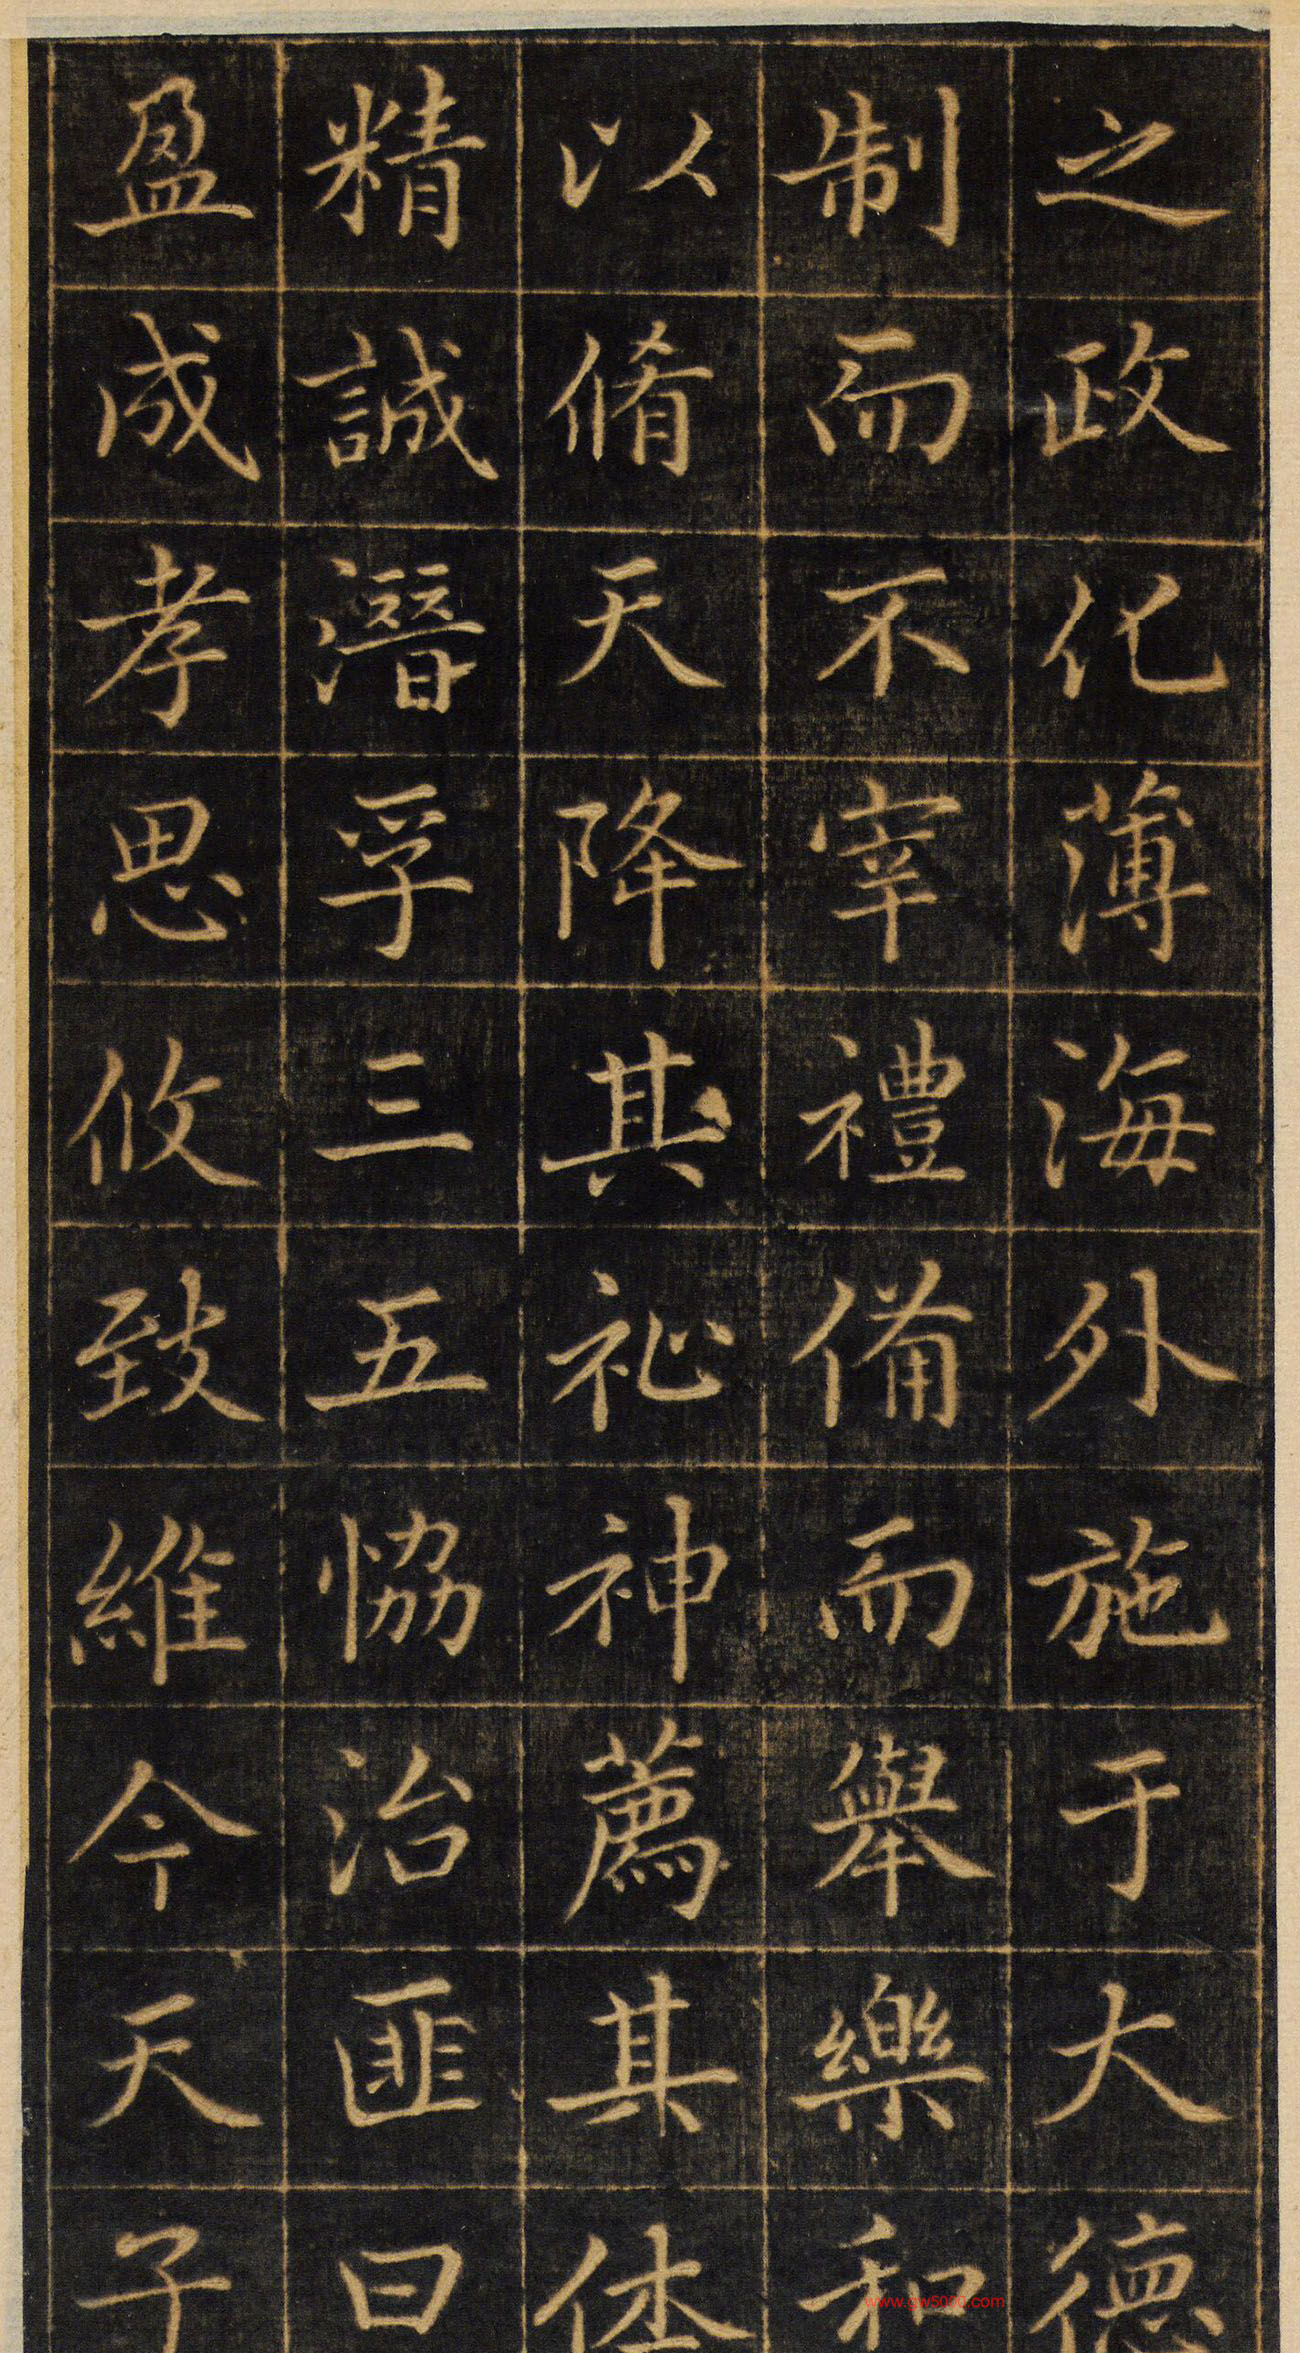 之政化薄海外施于大德
制而不宰禮備而舉樂和
以脩天降其祉神薦其休
精誠潛孚三五恊治匪曰
盈成孝思攸致維今天子
www.gw5000.com